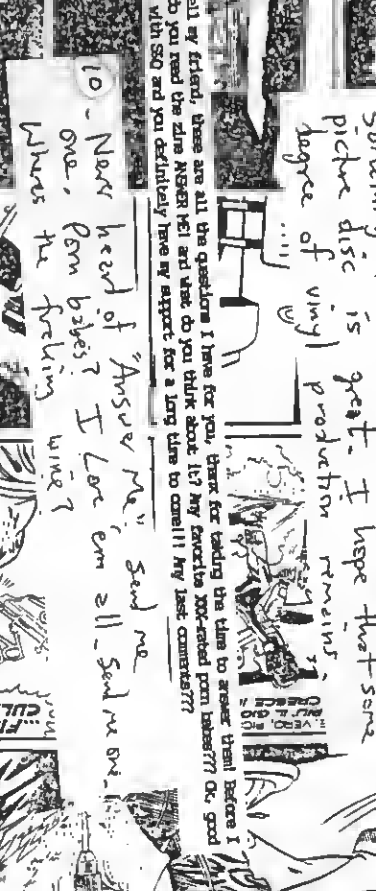 picture disc is great. I hope that some
degree of vinyl production remains.
.....
ell my friend, these are all the questions I have for you, thanx for taking the time to answer them! Before I
do you read the zine ANSWER ME! and what do you think about it? Any favorite XXX-rated porn babes??? Ok, good
with SSQ and you definitely have my support for a long time to come!!! Any last comments???
10 - Never heard of "Answer Me", send me
one. Porn babes? I Love em all - Send me one.
Wheres the fucking wine?
VERO, PIC
CRESCE
CUL